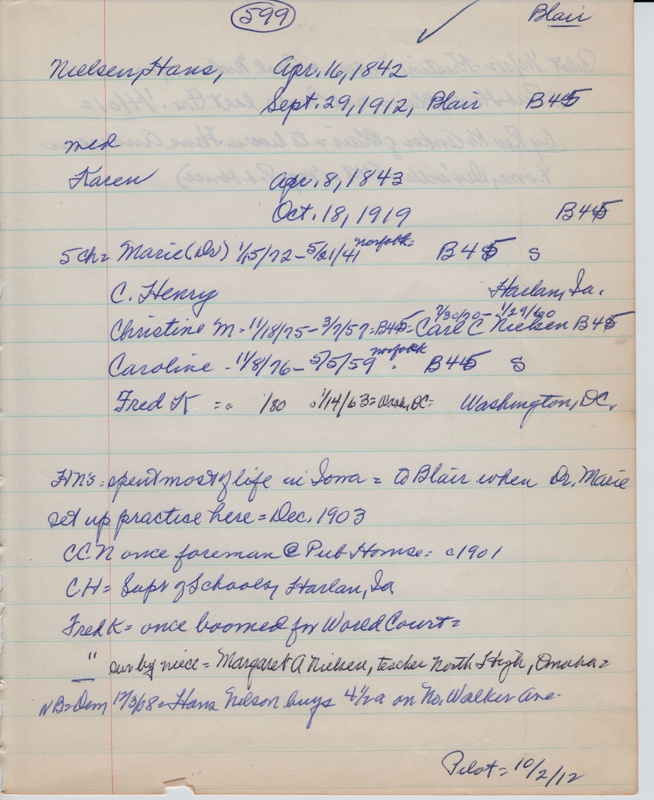 599
Blair
Nielsen, Hans, Apr. 16, 1842
Sept. 29, 1912, Blair B45
med
Karen Apr. 8, 1843
Oct. 18, 1919 B45
5 ch= Marie (Dr) 1/15/72 - 5/21/41 Norfolk= B45 S
C. Henry Harlan, Ia.
Christine M - 11/18/75 - 3/7/57 = B45 = Carl C Nielsen 7/30/70 - 1/29/60 B45
Caroline - 11/8/76 - 5/5/59 Norfolk. B45 S
Fred K = /80 1/14/63 = Wash, DC = Washington, DC.
HN's = spent most of life in Iowa = to Blair when Dr. Marie
set up practice here = Dec. 1903
CCN once foreman @ Pub House = c1901
CH = Supt of Schools, Harlan, Ia
Fred K = once boomed for World Court =
" sur by niece = Margaret A Nielsen, teacher North High, Omaha =
NB = Dem 12/3/08 = Hans Nelson buys 4 1/2 a on No. Walker Ave.
Pilot = 10/2/12